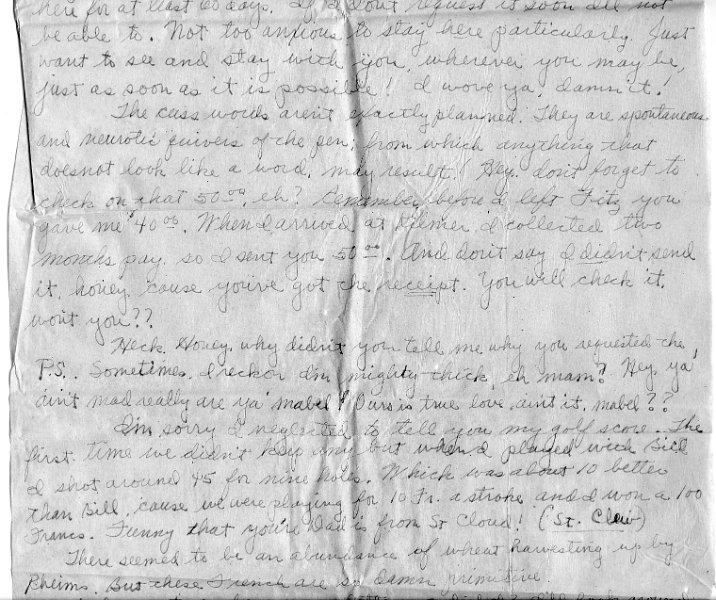 here for at least 60 days. If I don't request it soon I'll not
be able to. Not too anxious to stay here particularly. Just
want to see and stay with you, wherever you may be,
just as soon as it is possible! I wove ya, damn it!
The cuss words aren't exactly planned. They are spontaneous
and neurotic quivers of the pen, from which anything that
does not look like a word, may result. Hey, don't forget to
check on that 50.00, eh? Remember, before I left Fitz you
gave me 40.00. When I arrived at Kilmer, I collected two
months pay, so I sent you 50.00. And don't say I didn't send
it, honey, cause you've got the receipt. You will check it,
won't you??
Heck, Honey, why didn't you tell me why you requested the
P.S.. Sometimes, I reckon I'm mighty thick, eh mam? Hey, ya'
ain't mad really are ya' mabel? Ours is true love, aint it, mabel??
I'm sorry I neglected to tell you my golf score. The
first time we didn't keep any but when I played with Bill
I shot around 45 for nine holes. Which was about 10 better
than Bill, 'cause we were playing for 10 Fr. a stroke and I won a 100
Francs. Funny that you're Dad is from St Cloud! (St. Clair)
There seemed to be an abundance of wheat harvesting up by
Rheims. But these French are so damn primitive.